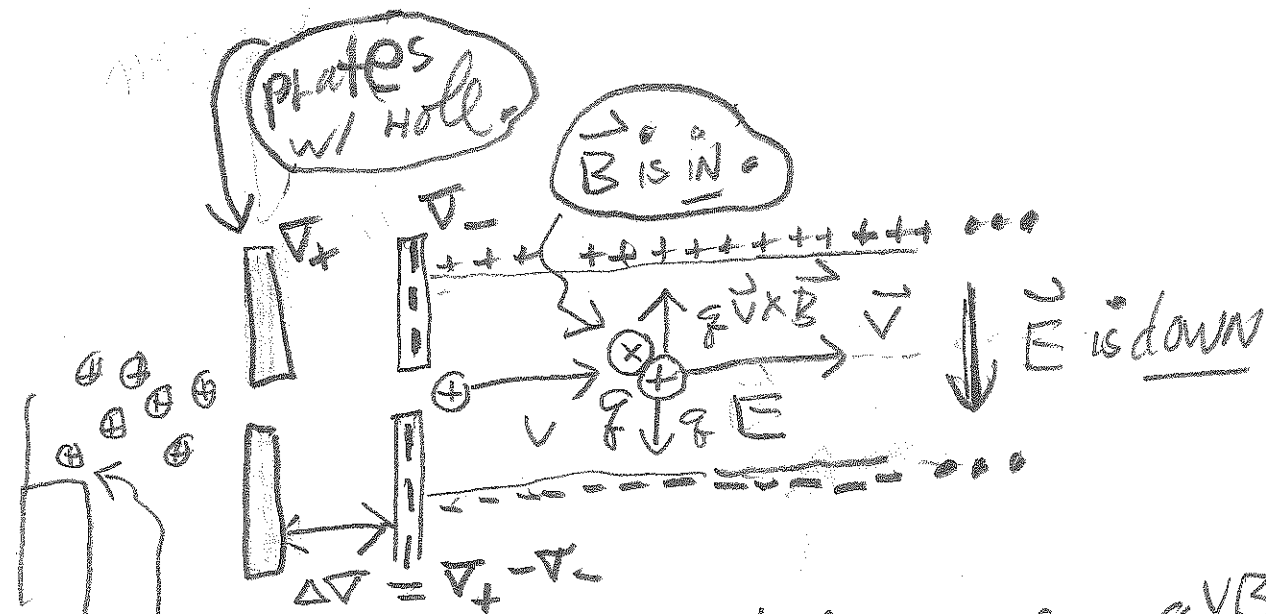 plates
w/ Hole.
B⃗ is IN.
V₊
V₋
+ + + + + + + + + + + + + •••
q v⃗ x B⃗
v⃗
E⃗ is down
v
q
q E
- - - - - - - - - - - - •••
ΔV = V₊ - V₋